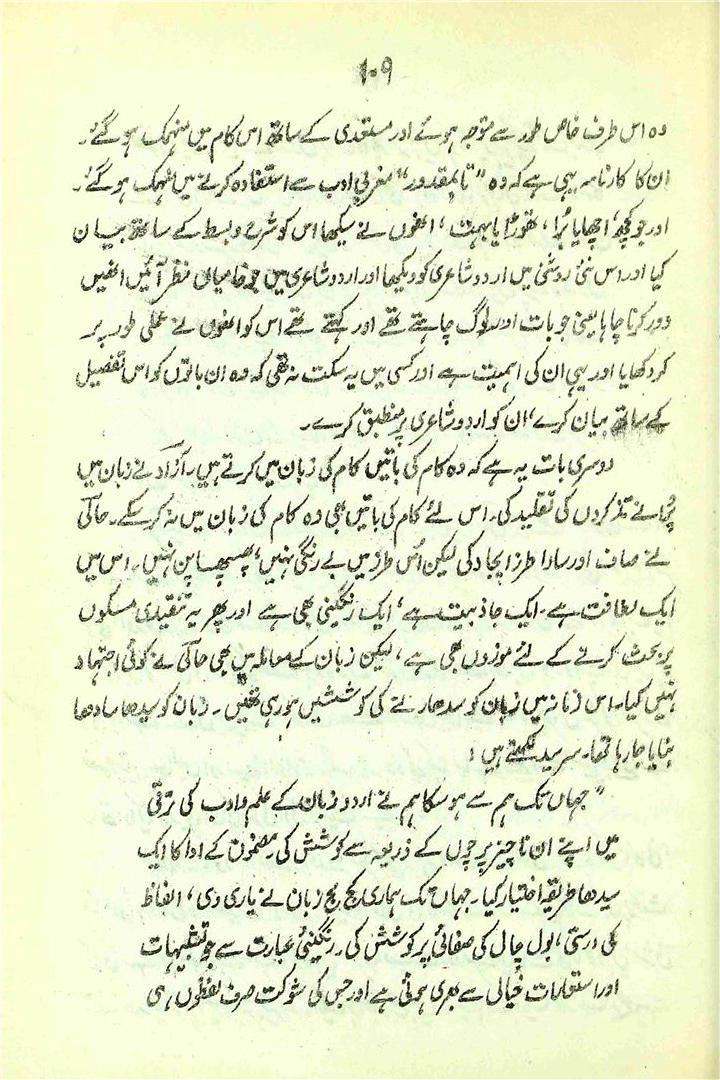 ۱۰۹
وہ اس طرف خاص طور سے متوجہ ہوئے اور مستعدی کے ساتھ اس کام میں منہمک ہوگئے۔
ان کا کارنامہ یہی ہے کہ وہ "تابمقدور" مغربی ادب سے استفادہ کرنے میں منہمک ہوگئے۔
اور جو کچھ، اچھا یا بُرا، تھوڑا یا بہت، انھوں نے سیکھا اس کو شرح و بسط کے ساتھ بیان
کیا اور اس نئی روشنی میں اردو شاعری کو دیکھا اور اردو شاعری میں جو خامیاں نظر آئیں انھیں
دور کرنا چاہا یعنی جو بات اور لوگ چاہتے تھے اور کہتے تھے اس کو انھوں نے عملی طور پر
کر دکھایا اور یہی ان کی اہمیت ہے اور کسی میں یہ سکت نہ تھی کہ وہ ان باتوں کو اس تفصیل
کے ساتھ بیان کرے، ان کو اردو شاعری پر منطبق کرے۔
دوسری بات یہ ہے کہ وہ کام کی باتیں کام کی زبان میں کرتے ہیں۔ آزاد نے زبان میں
پُرانے تذکروں کی تقلید کی۔ اس لئے کام کی باتیں بھی وہ کام کی زبان میں نہ کرسکے۔ حالی
نے صاف اور سادا طرز ایجاد کی لیکن اُس طرز میں بے رنگی نہیں، پھسپھساپن نہیں۔ اس میں
ایک لطافت ہے۔ ایک جاذبیت ہے، ایک رنگینی بھی ہے اور پھر یہ تنقیدی مسئلوں
پر بحث کرنے کے لئے موزوں بھی ہے، لیکن زبان کے معاملہ میں بھی حالی نے کوئی اجتہاد
نہیں کیا۔ اس زمانہ میں زبان کو سدھارنے کی کوششیں ہو رہی تھیں۔ زبان کو سیدھا سادھا
بنایا جا رہا تھا۔ سرسید لکھتے ہیں:
"جہاں تک ہم سے ہو سکا ہم نے اردو زبان کے علم و ادب کی ترقی
میں اپنے ان ناچیز پرچوں کے ذریعہ سے کوشش کی۔ مضمون کے ادا کا ایک
سیدھا طریقہ اختیار کیا۔ جہاں تک ہماری کج مج زبان نے یاری دی، الفاظ
کی درستی، بول چال کی صفائی پر کوشش کی۔ رنگینئ عبارت سے جو تشبیہات
اور استعارات خیالی سے بھری ہوئی ہے اور جس کی شوکت صرف لفظوں ہی